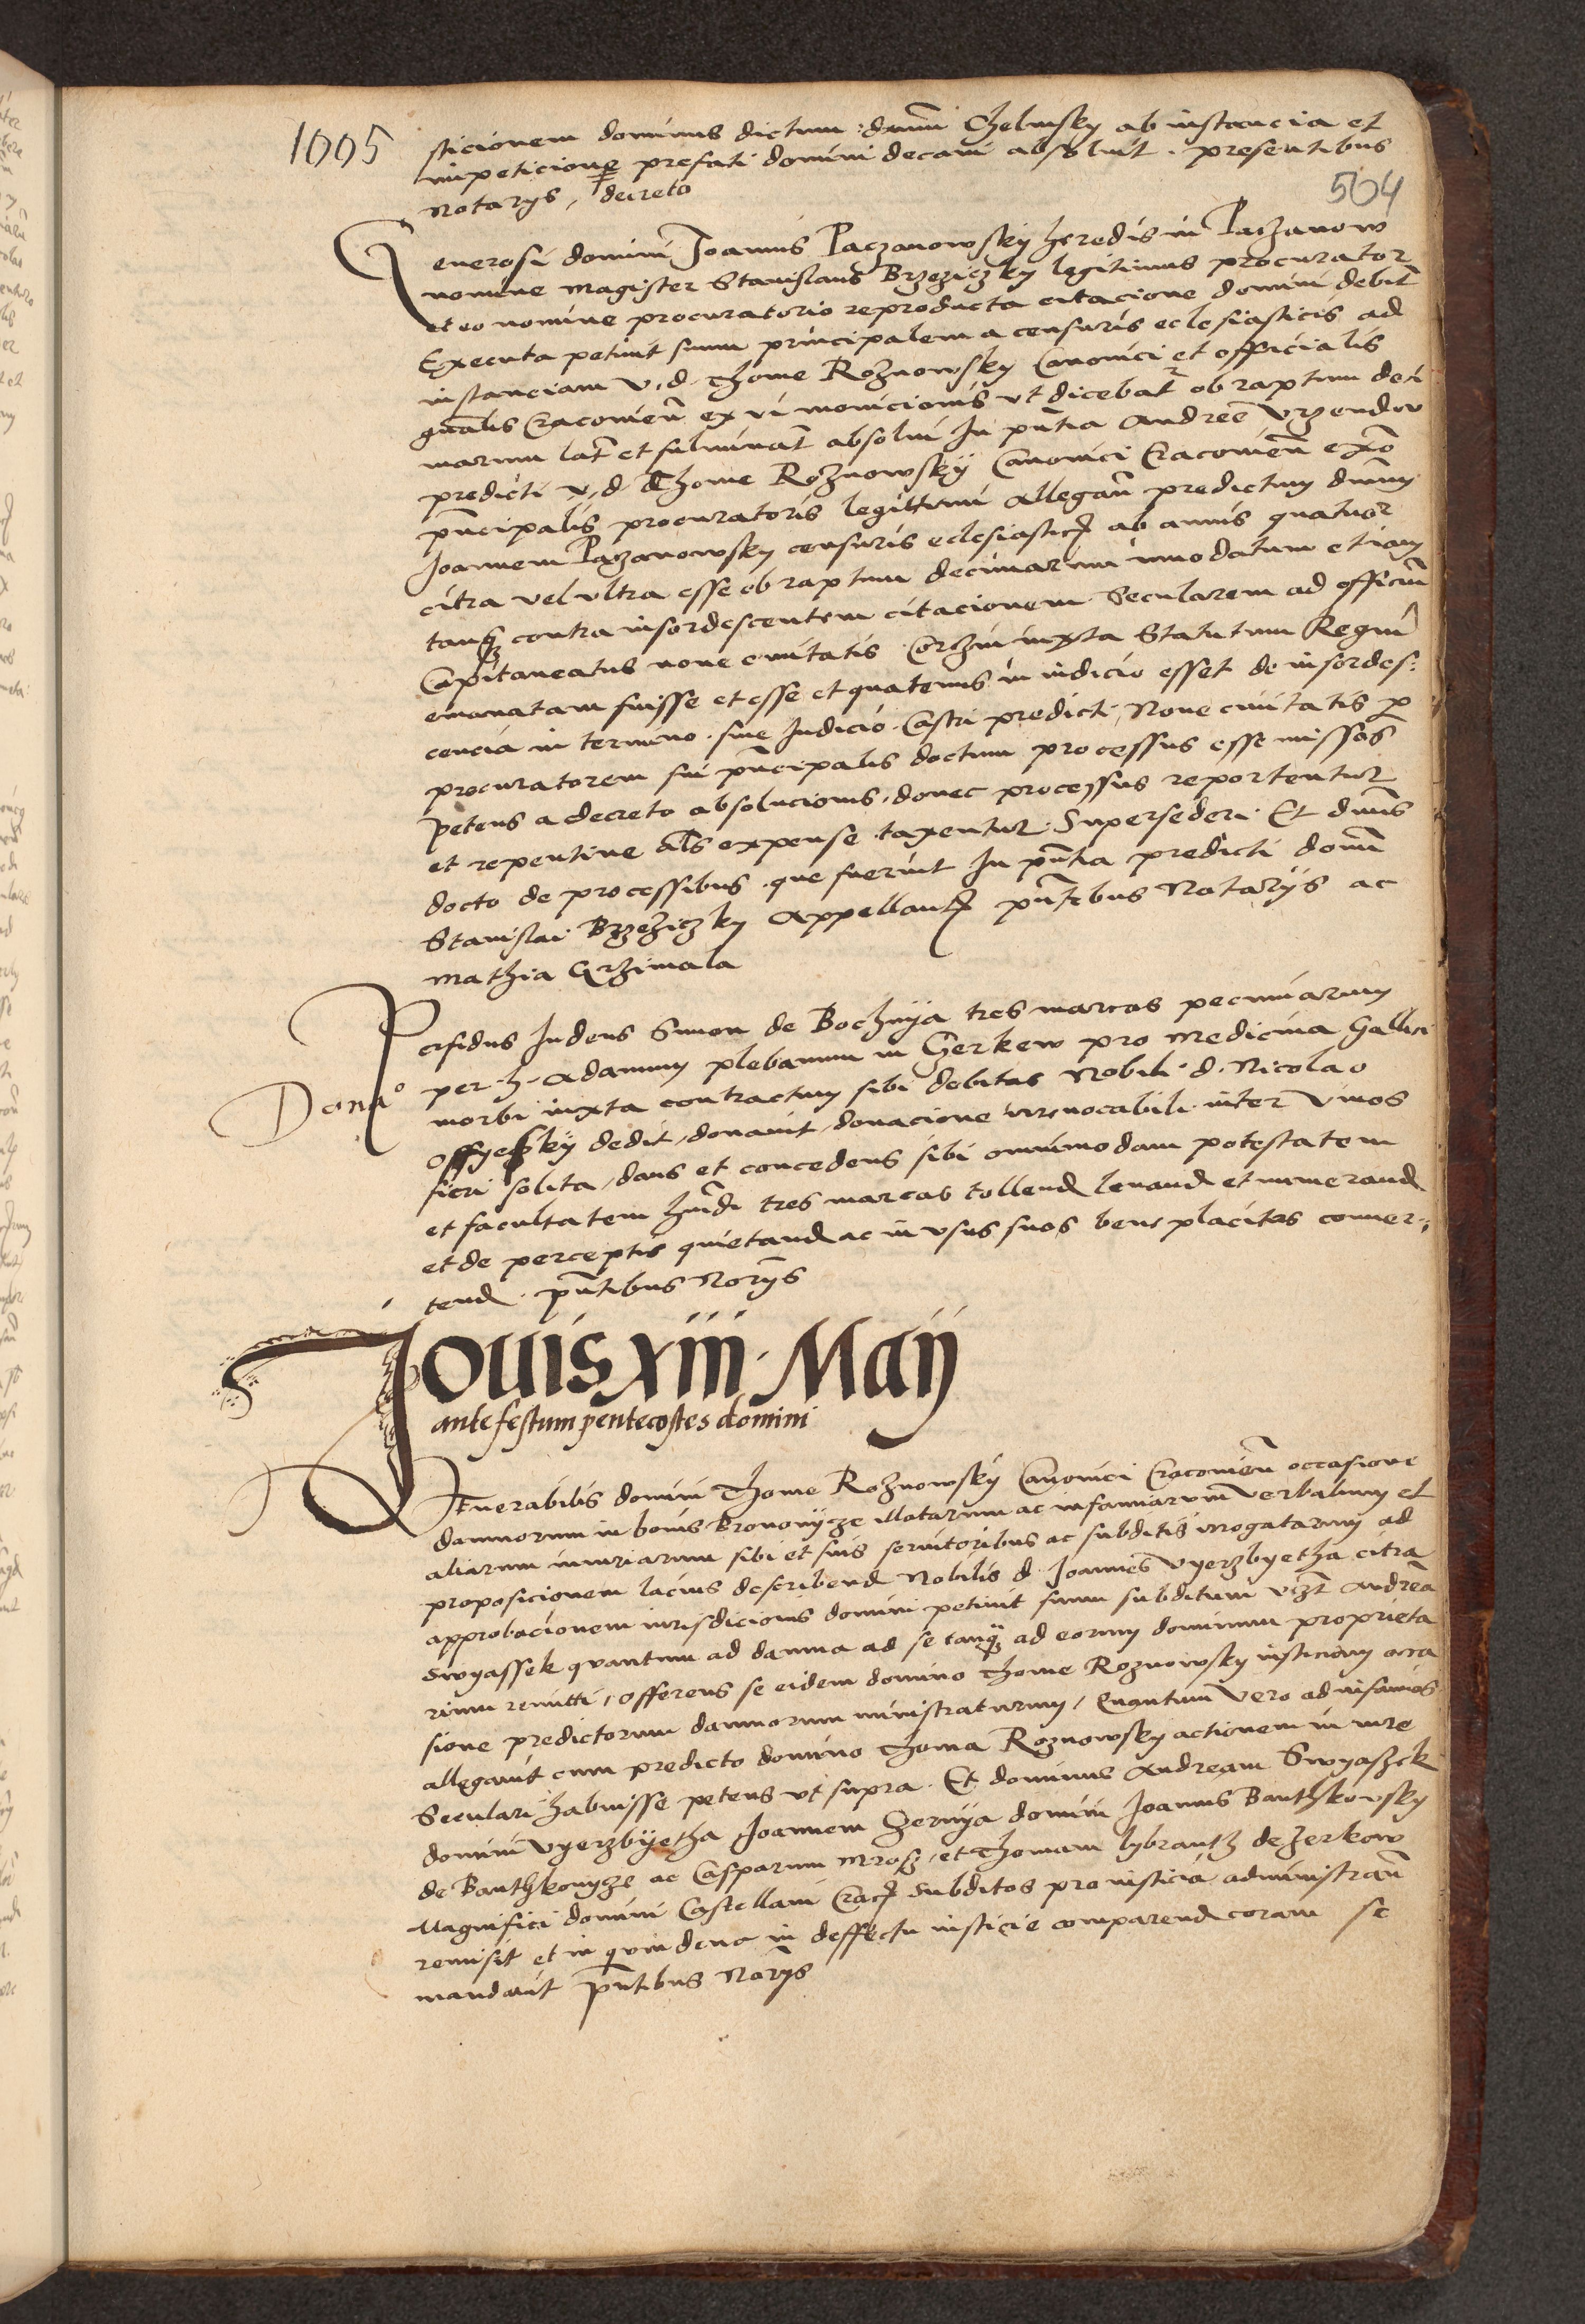 1005
sticionem dominus dictum dnum Chelmsky ab instancia et
impeticione prefati domini decani absoluit. presentibus
Notarys, decreto
504
Generosi domini Joannis Paczanowsky heredis in Paczanow
nomine magister Stanislaus Brzeziczky legitimus procurator
et eo nomine procuratorio reproducta citacione domini debit
Executa petiuit suum principalem a censuris ecclesiasticis ad
instanciam v. d. Thome Roznowsky Canonici et officialis
gnalis Cracouien ex vi monicionis vt dicebatr ob raptum deci
marum lat et fulminat absolui In pntia Andree Vrzendow
predicti v. d. Thome Roznowsky Canonici Cracouien
pncipalis procuratoris legittimi allegan predictum dnum
Joannem Paczanowsky censuris ecclesiastic ab annis quatuor
citra vel vltra esse ob raptum decimarum innodatum etiam
tanq contra insordescentem citacionem Secularem ad officium
Capitaneatus noue ciuitatis Corzin iuxta Statutum Regni
emanatam fuisse et esse et quatenus in iudicio esset de insordes:
cencia in termino siue Iudicio Castri predicti Noue ciuitatis p
procuratorem sui pncipalis doctum processus esse missos
petens a decreto absolucionis, donec processus reportentur
et repentine als expense taxentur. Supersederi. Et dnus
docto de processibus que fuerint In pntia predicti domi
Stanislai Brzeziczky Appellant pntibus Notarijs ac
mathia Grzimala
Perfidus Iudeus Simon de Bochnya tres marcas pecuniarum
per h. Adamum plebanum in Czerkew pro medicina Gallici
Dona^o
morbi iuxta contractum sibi debitas Nobili d. Nicolao
Ossyesky dedit, donauit, donacione irreuocabili inter viuos
fieri solita, dans et concedens sibi omnimodam potestatem
et facultatem hmdi tres marcas tollend leuand et numerand
et de perceptis quietand ac in vsus suos bene placitos conuer:
tend. pntibus Norijs
Jouis xiii Maij
ante festum pentecostes domini
Venerabilis domini Thome Roznowsky Canonici Cracouien occasione
damnorum in bonis Bronowycze illatarum ac infamiarum verbalium et
aliarum iniuriarum sibi et suis seruitoribus ac subditis irrogatarum ad
proposicionem lacius describend Nobilis d. Joannes Vyerzbyetha citra
approbacionem iurisdicionis domini petiuit suum subditum vizt Andrea
Swyassek quantum ad damna ad se tanq ad eorum dominum proprieta
rium remitti, offerens se eidem domino Thome Roznowsky iusticiam occa
sione predictorum damnorum ministraturum, Quantum vero ad infamias
allegauit cum predicto domino Thoma Roznowsky actionem in iure
Seculari habuisse petens vt supra. Et dominus Andream Swyaszek
domini Vyerzbyetha Joannem Czernya domini Joannis Banthkowsky
de Banthkowycze ac Casparum Mrosz, et Thomam lybranth de Zerkow
Magnifici domini Castellani Crac subditos pro iusticia administran
remisit et in quindena in deffectu iusticie comparend coram se
mandauit pntibus Norijs